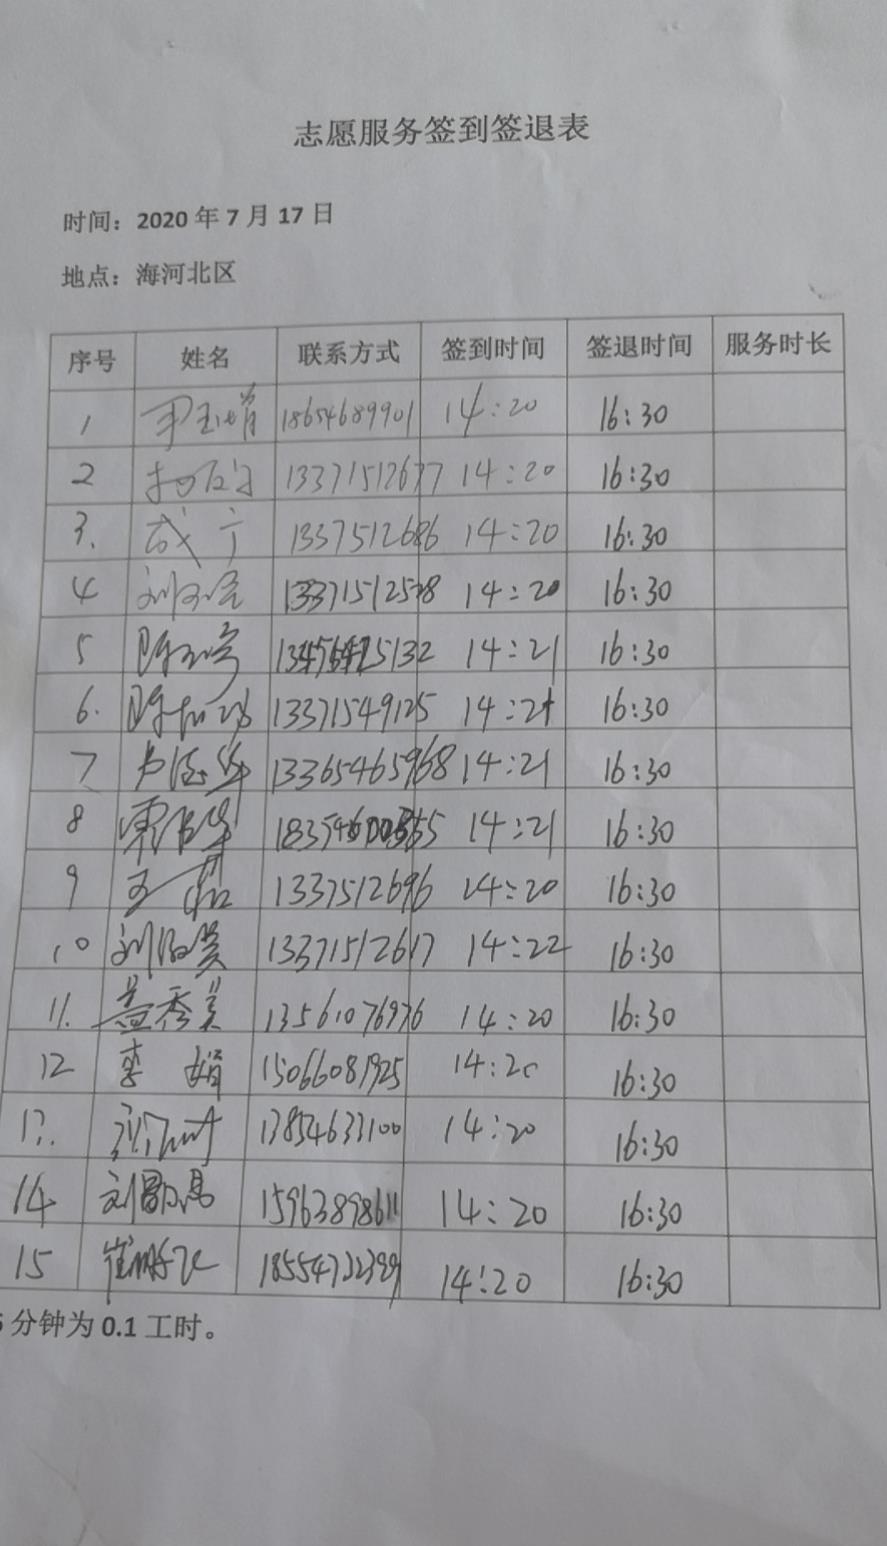 志愿服务签到签退表
时间：2020 年 7 月 17 日
地点：海河北区
序号 姓名 联系方式 签到时间 签退时间 服务时长
1 18654689901 14:20 16:30
2 13371512677 14:20 16:30
3. 成宁 1337512686 14:20 16:30
4 14:20 16:30
5 14:21 16:30
6. 13371549125 14:21 16:30
7 13365465968 14:21 16:30
8 14:21 16:30
9 王 1337512696 14:20 16:30
10 刘 13371512617 14:22 16:30
11. 盖秀美 13561076976 14:20 16:30
12 李娟 15066081925 14:20 16:30
13. 13854633100 14:20 16:30
14 刘 15963898611 14:20 16:30
15 崔 14:20 16:30
分钟为 0.1 工时。